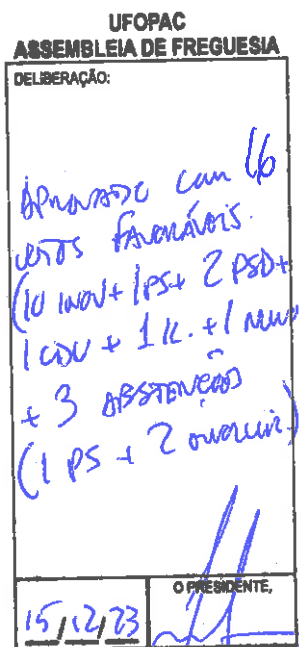 UFOPAC
ASSEMBLEIA DE FREGUESIA
DELIBERAÇÃO:
Aprovado com 16
votos favoráveis.
(10 INOV + 1 PS + 2 PSD +
1 CDU + 1 IL. + 1
+ 3 ABSTENÇÕES
(1 PS + 2
O PRESIDENTE,
15/12/23